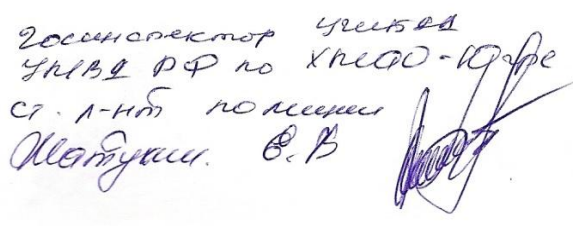 Госинспектор УГИБДД
УМВД РФ по ХМАО-Югре
ст. л-нт полиции
Шатукин. Е.В